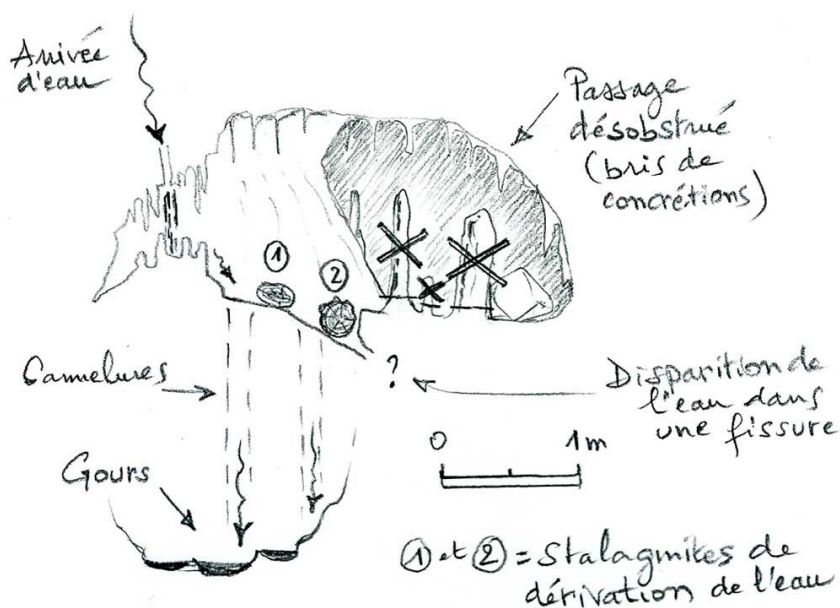 Arrivée
d'eau
Passage
désobstrué
(bris de
concrétions)
①
②
Cannelures
?
Disparition de
l'eau dans
une fissure
0 1m
Gours
① et ② = Stalagmites de
dérivation de l'eau